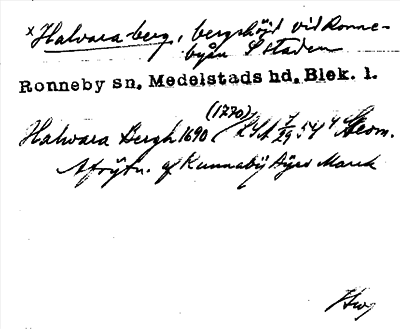 x Halvara berg, bergshöjd vid Ronne-
byån S staden
Ronneby sn, Medelstads hd, Blek. l.
(1770)
Halwara Bergh 1690 LSA 7/29 54 4 Geom.
Afrijtn. af Runnaby Åhrs Marck
Hwg